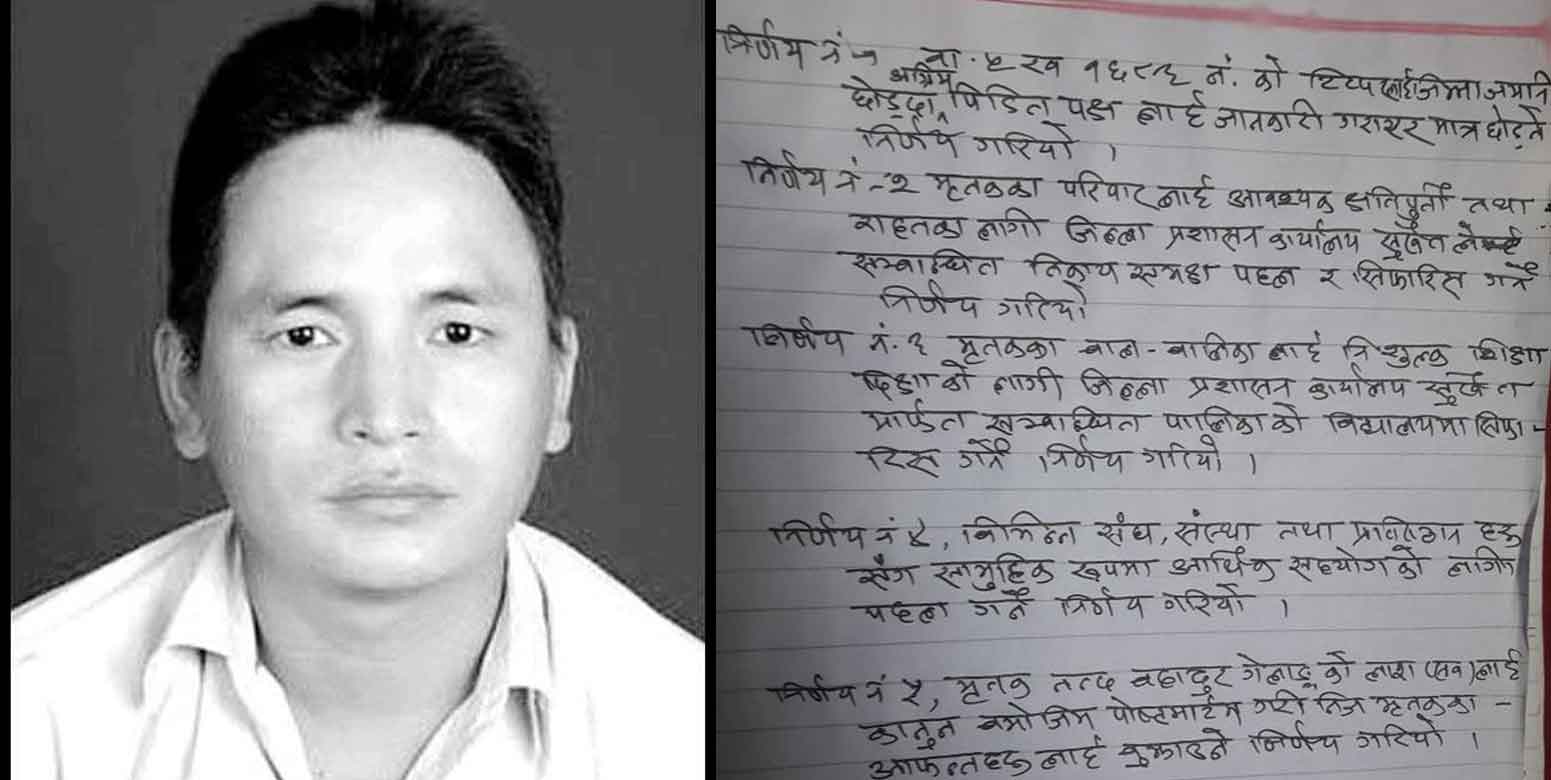 निर्णय नं १ ना. ५ ख १६८८ नं. को टिप्पर लाई जिम्मा जमानि
अग्रिम
छोड्दा, पिडित पक्ष लाई जानकारी गराएर मात्र छोड्ने
निर्णय गरियो ।
निर्णय नं -२ मृतकका परिवार लाई आवश्यक क्षतिपुर्ती तथा
राहतका लागी जिल्ला प्रशासन कार्यालय सुर्खेत
सम्बान्धित निकाय समक्ष पहल र सिफारिस गर्ने
निर्णय गरियो
निर्णय नं. ३ मृतकका बाल-बालिका लाई नि शुल्क शिक्षा
दिक्षा को लागी जिल्ला प्रशासन कार्यालय सुर्खेत
मार्फत सम्बान्धित पालिका को विद्यालयमा सिफा-
रिस गर्ने निर्णय गरियो ।
निर्णय नं ४, विभिन्न संघ, संस्था तथा प्रतिष्ठान हरु
सँग सामुहिक रूपमा आर्थिक सहयोग को लागि
पहल गर्ने निर्णय गरियो ।
निर्णय नं ५, मृतक नन्द बहादुर गेलाङ्ग को लाश (सव) लाई
कानुन बमोजिम पोष्टमार्टम गरी निज मृतकका -
आफन्तहरु लाई बुझाउने निर्णय गरियो ।